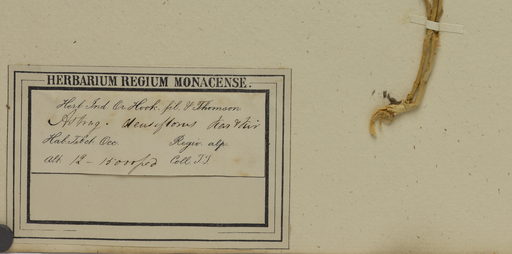 HERBARIUM REGIUM MONACENSE.
Herb. Ind. Or. Hook. fil. & Thomson
Astrag. densiflorus Kar & Kir
Hab. Tibet Occ. Regio alp.
Alt. 12-15000 ped Coll. T.T.